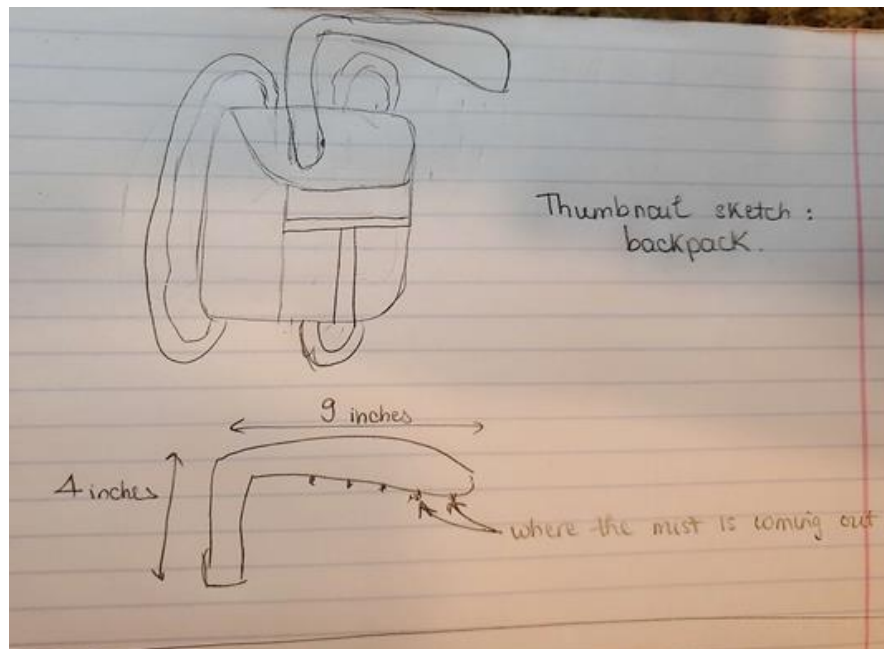 Thumbnail sketch :
backpack.
9 inches
4 inches
where the mist is coming out